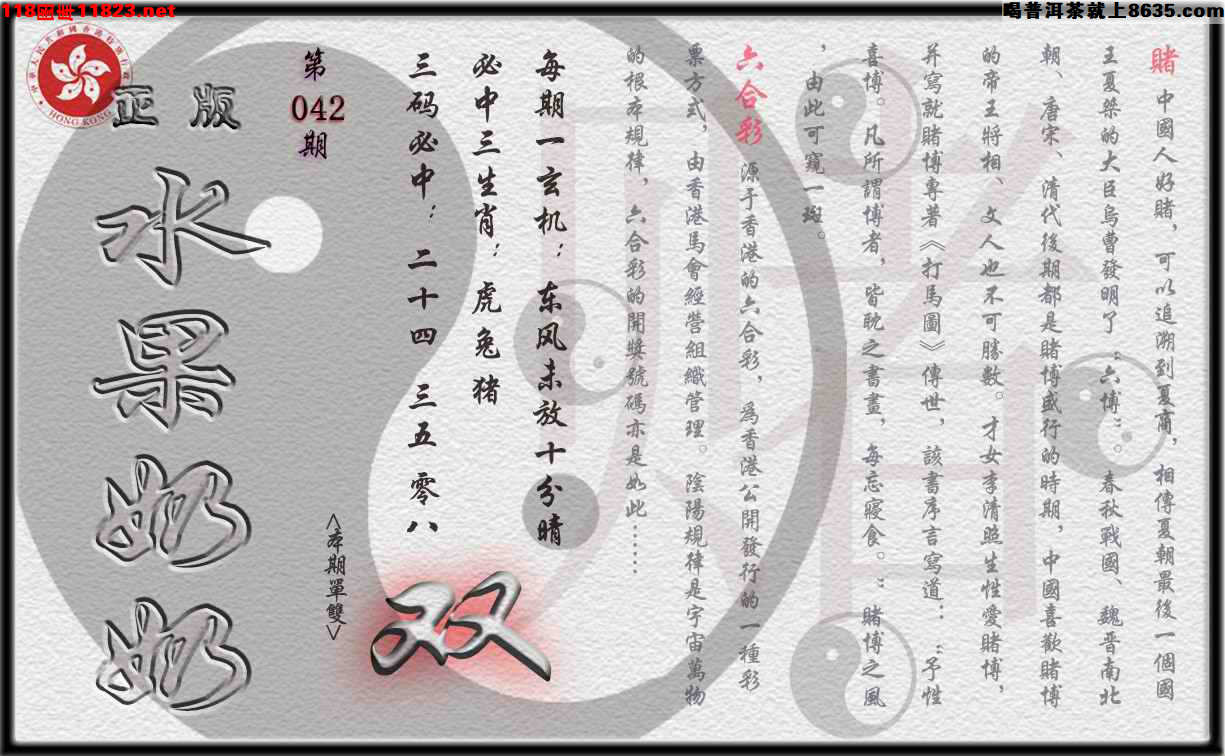 118图库11823.net
喝普洱茶就上8635.com
賭 中國人好賭，可以追溯到夏商，相傳夏朝最後一個國
王夏桀的大臣烏曹發明了“六博”。春秋戰國、魏晋南北
朝、唐宋、清代後期都是賭博盛行的時期，中國喜歡賭博
的帝王將相、文人也不可勝數。才女李清照生性愛賭博，
并寫就賭博專著《打馬圖》傳世，該書序言寫道：：“予性
喜博。凡所謂博者，皆耽之書畫，每忘寢食。”：賭博之風
，由此可窺一斑。
六合彩 源于香港的六合彩，爲香港公開發行的一種彩
票方式，由香港馬會經營組織管理。陰陽規律是宇宙萬物
的根本規律，六合彩的開獎號碼亦是如此……
每期一玄机：东风未放十分晴
必中三生肖：虎兔猪
三码必中：二十四 三五 零八
<本期單雙>
双
第
042
期
正版
水果奶奶
HONG KONG